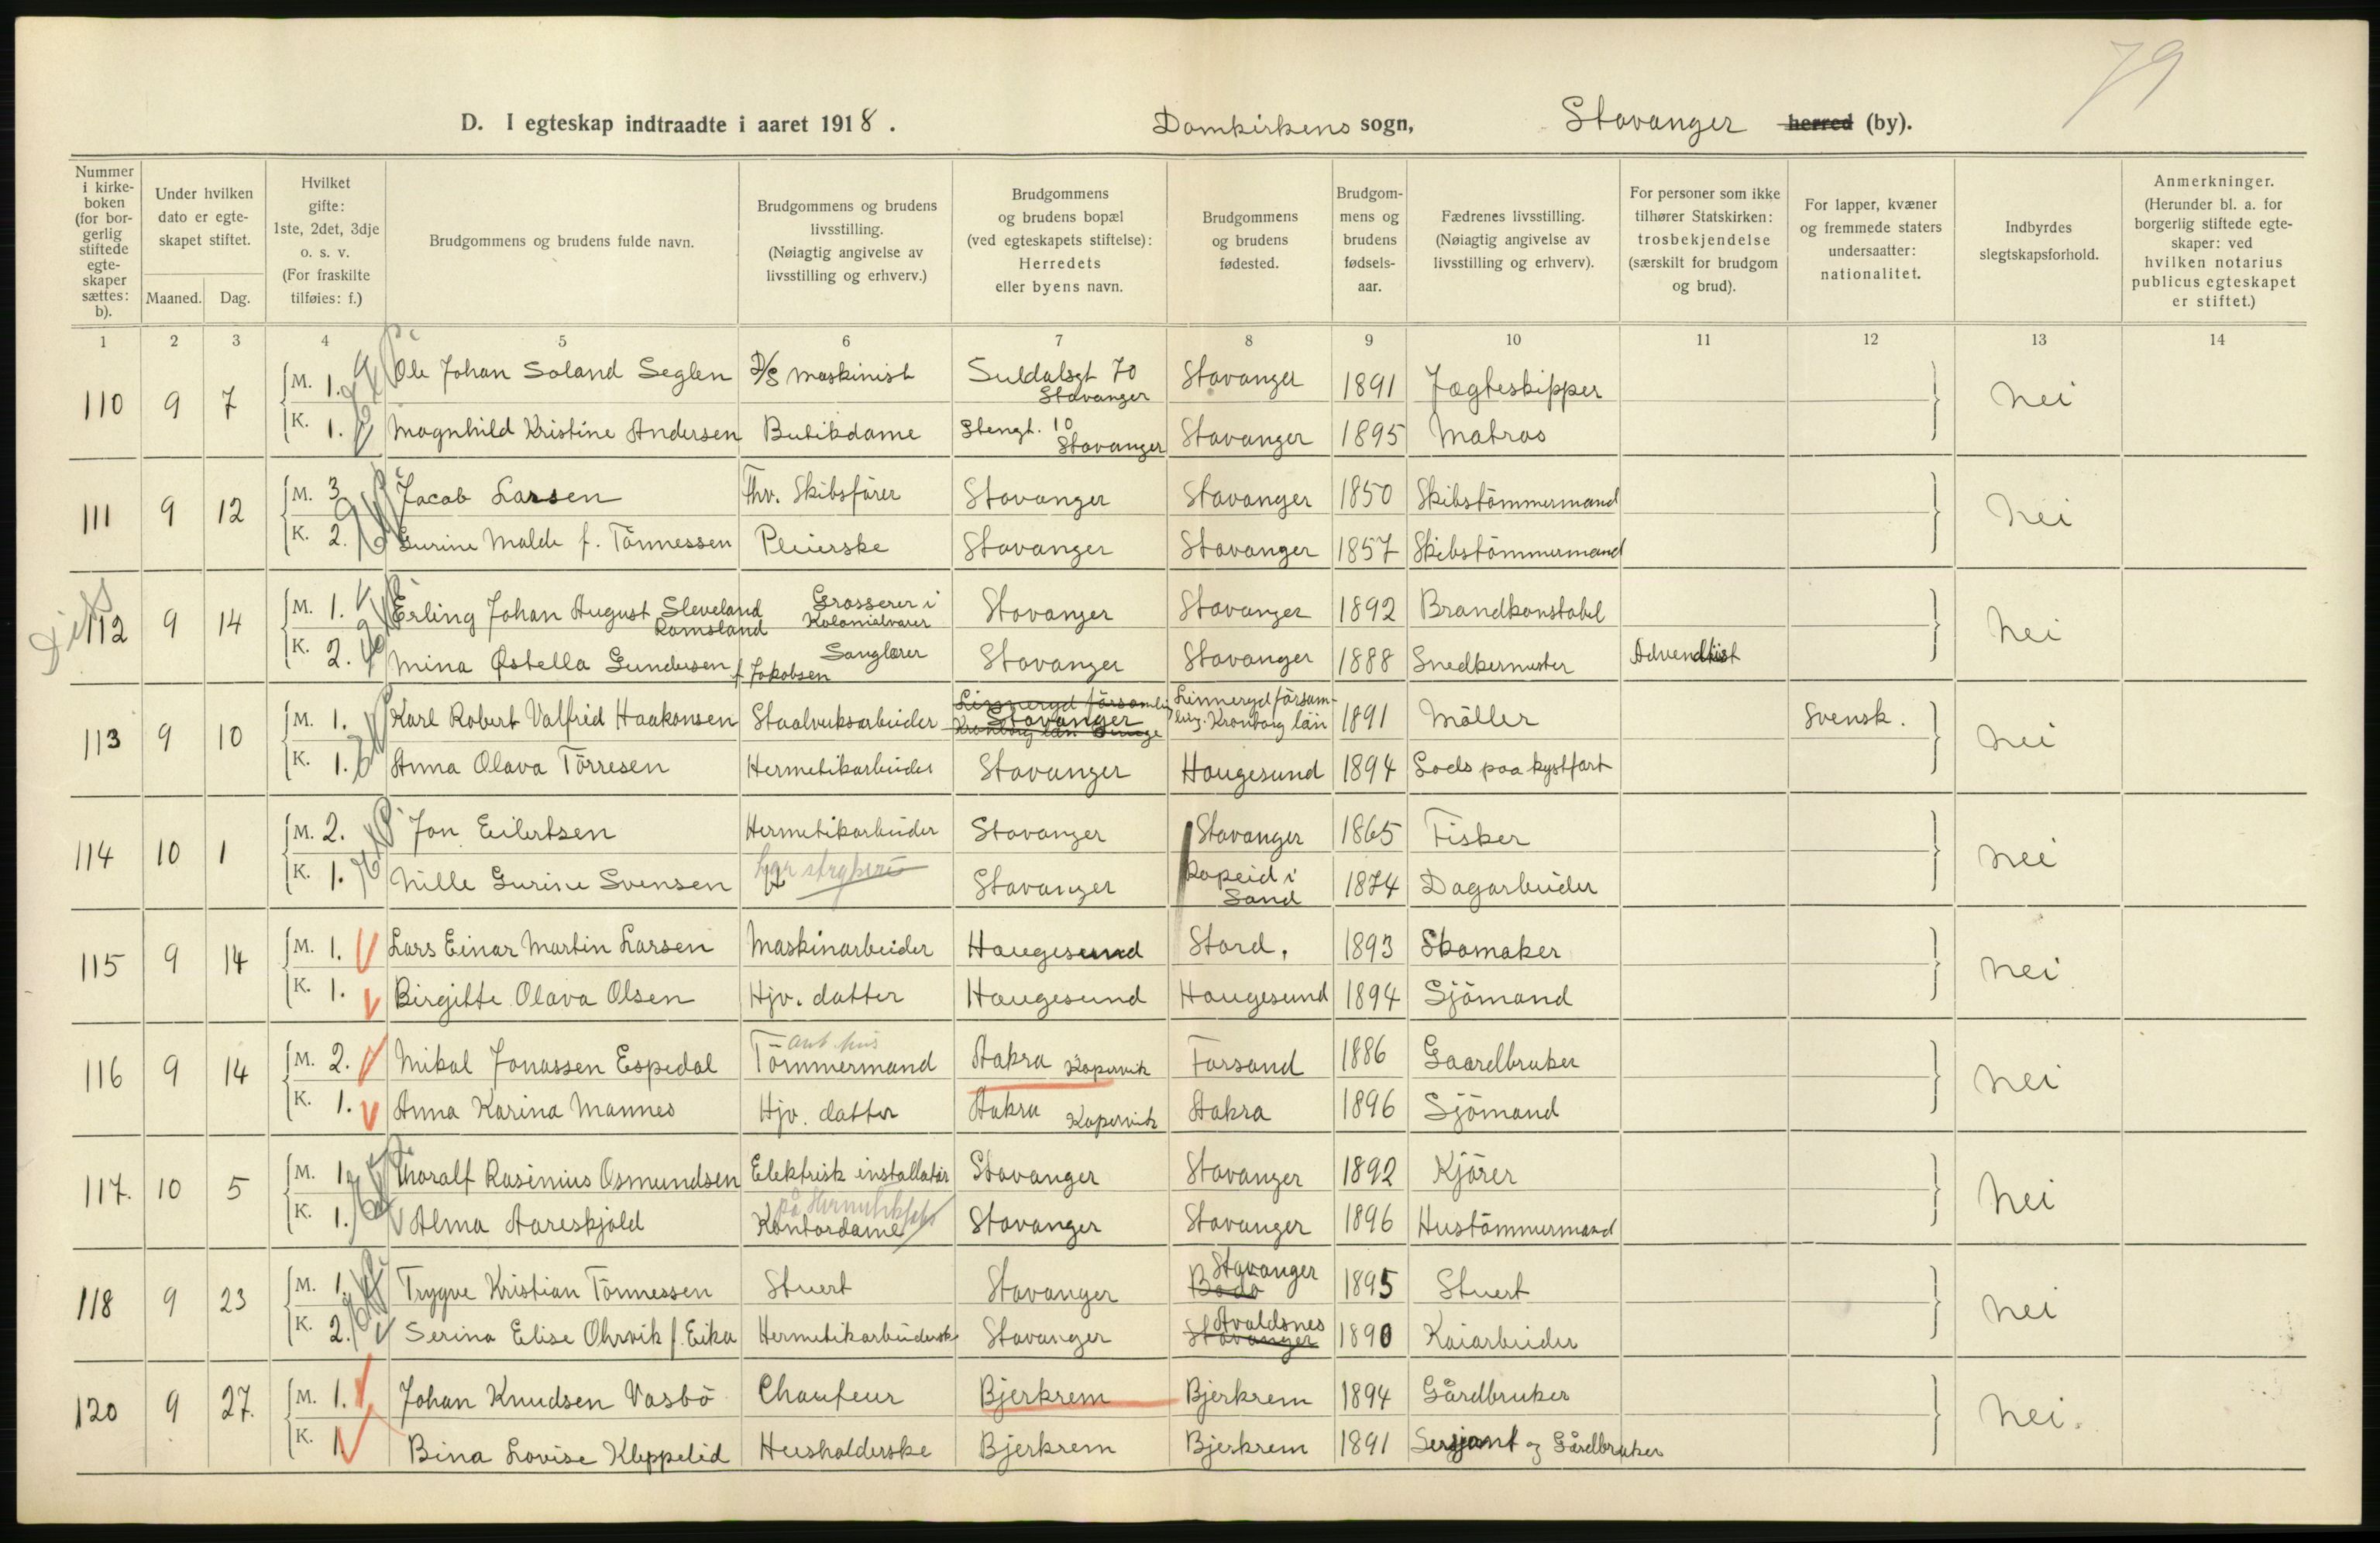 79
D. I egteskap indtraadte i aaret 1918. Domkirkens sogn, Stavanger herred (by).
Nummer i kirkeboken (for borgerlig stiftede egteskaper sættes: b).
Under hvilken dato er egteskapet stiftet. Maaned. Dag.
Hvilket gifte: 1ste, 2det, 3dje o. s. v. (For fraskilte tilføies: f.)
Brudgommens og brudens fulde navn.
Brudgommens og brudens livsstilling. (Nøiagtig angivelse av livsstilling og erhverv.)
Brudgommens og brudens bopæl (ved egteskapets stiftelse): Herredets eller byens navn.
Brudgommens og brudens fødested.
Brudgommens og brudens fødselsaar.
Fædrenes livsstilling. (Nøiagtig angivelse av livsstilling og erhverv).
For personer som ikke tilhører Statskirken: trosbekjendelse (særskilt for brudgom og brud).
For lapper, kvæner og fremmede staters undersaatter: nationalitet.
Indbyrdes slegtskapsforhold.
Anmerkninger. (Herunder bl. a. for borgerlig stiftede egteskaper: ved hvilken notarius publicus egteskapet er stiftet.)
1 2 3 4 5 6 7 8 9 10 11 12 13 14
110 9 7 M. 1. Ole Johan Soland Seglen D/S Maskinist Suldalsgt 70 Stavanger Stavanger 1891 Jægteskipper nei
K. 1. Magnhild Kristine Andersen Butikdame Stengt. 10 Stavanger Stavanger 1895 Matros
111 9 12 M. 3 Jacob Larsen Fhv. Skibsfører Stavanger Stavanger 1850 Skibstömmermand nei
K. 2. Gurine Malde f. Tönnessen Pleierske Stavanger Stavanger 1857 Skibstömmermand
112 9 14 M. 1. Erling Johan August Sleveland Ramsland Grosserer i Kolonialvarer Stavanger Stavanger 1892 Brandkonstabel nei
K. 2. Mina Østella Gundersen f Jakobsen Sanglærer Stavanger Stavanger 1888 Snedkermester Advendtist
113 9 10 M. 1. Karl Robert Valfrid Haakonsen Staalverksarbeider Linneryd församling Stavanger Kronborg län Linneryd församling. Kronborg län 1891 Möller Svensk. nei
K. 1. Anna Olava Törresen Hermetikarbeider Stavanger Haugesund 1894 Lods paa kystfart
114 10 1 M. 2. Jon Eilertsen Hermetikarbeider Stavanger Stavanger 1865 Fisker nei
K. 1. Nille Gurine Svensen har strykeri Stavanger Ropeid i Sand 1874 Dagarbeider
115 9 14 M. 1. Lars Einar Martin Larsen Maskinarbeider Haugesund Stord. 1893 Skomaker nei
K. 1. Birgitte Olava Olsen Hjv. datter Haugesund Haugesund 1894 Sjömand
116 9 14 M. 2. Mikal Jonassen Espedal Tömmermand Aakra Kopervik Forsand 1886 Gaardbruker nei
K. 1. Anna Karina Mannes Hjv. datter Aakra Kopervik Aakra 1896 Sjömand
117. 10 5 M. 1. Thoralf Rasinius Osmundsen Elektrisk installatör Stavanger Stavanger 1892 Kjörer nei
K. 1. Alma Aareskjold på Hermetikfabr Kontordame Stavanger Stavanger 1896 Hustömmermand
118 9 23 M. 1. Trygve Kristian Tönnessen Stuert Stavanger Stavanger Bodö 1895 Stuert nei
K. 2. Serina Elise Ohrvik f. Eika Hermetikarbeiderske Stavanger Avaldsnes Stavanger 1890 Kaiarbeider
120 9 27. M. 1. Johan Knudsen Vasbö Chaufeur Bjerkrem Bjerkrem 1894 Gårdbruker nei.
K. 1 Bina Lovise Kleppelid Husholderske Bjerkrem Bjerkrem 1891 Sersjant og Gårdbruker